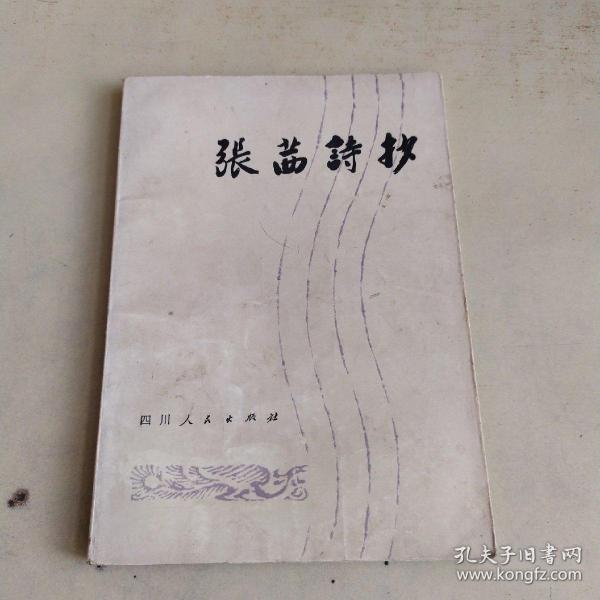 張茜詩抄
四川人民出版社
孔夫子旧書网
www.kongfz.com